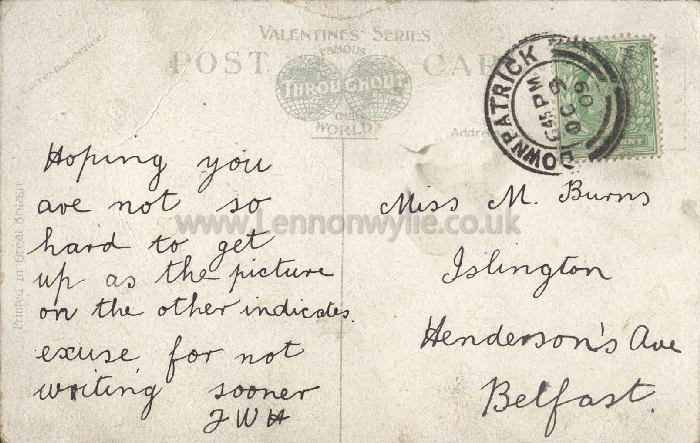 VALENTINES' SERIES
FAMOUS
POST CARD
THROUGHOUT
THE
WORLD
Correspondence
Address
Printed in Great Britain
DOWNPATRICK
5 45 PM
OC 6
09
Hoping you
are not so
hard to get
up as the picture
on the other indicates.
excuse for not
writing sooner
J W H
Miss M. Burns
Islington
Henderson's Ave
Belfast.
www.Lennonwylie.co.uk